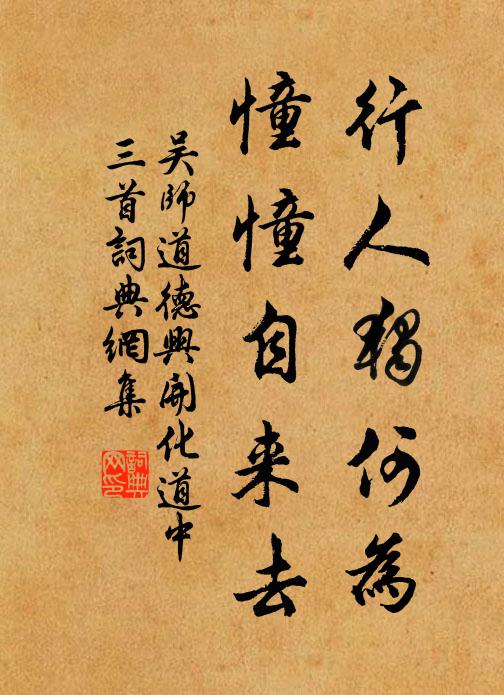 行人獨何為
憧憧自来去
吴師道德興開化道中
三首詞典網集
詞典网印